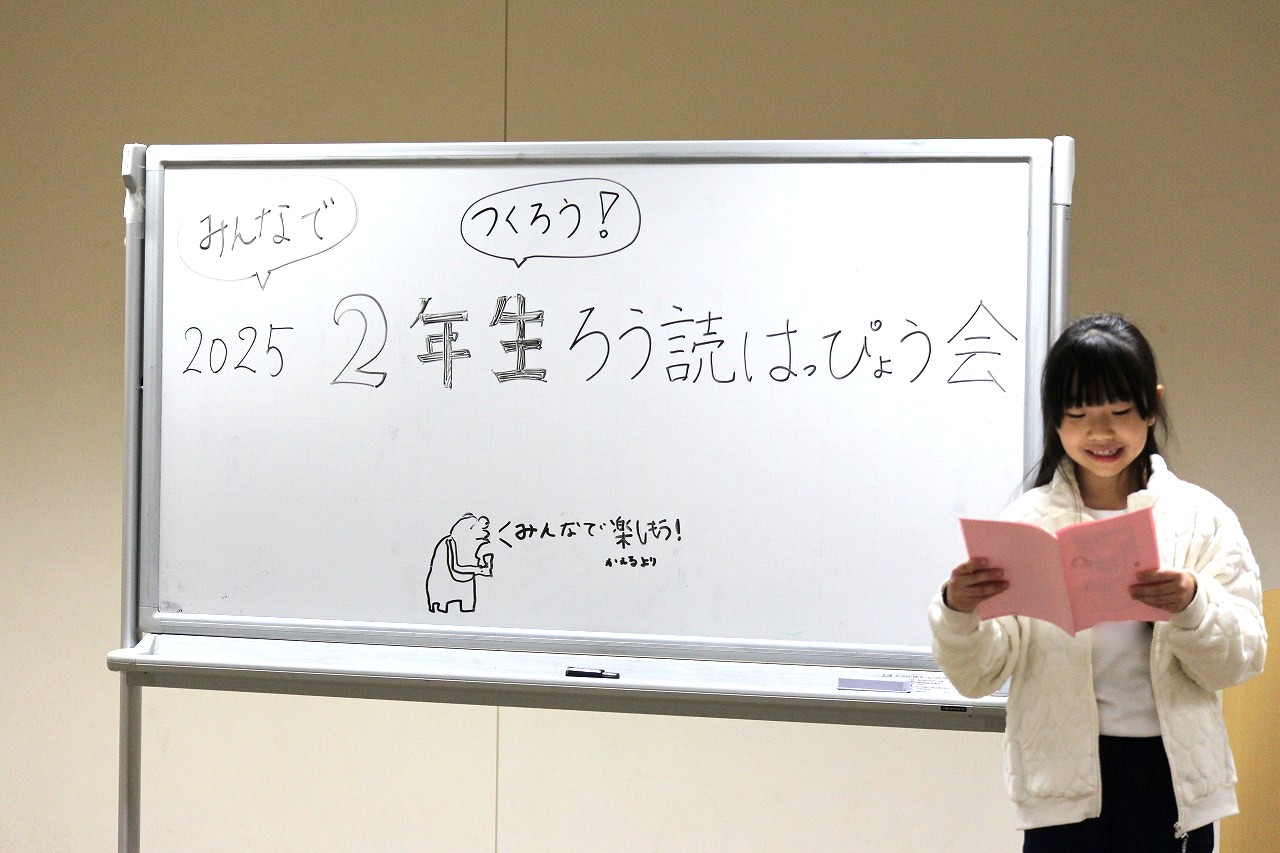 みんなで
つくろう!
2025 2年生ろう読はっぴょう会
みんなで楽しもう!
かえるより